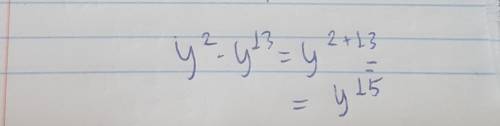 y² · y¹³ = y²⁺¹³ =
= y¹⁵